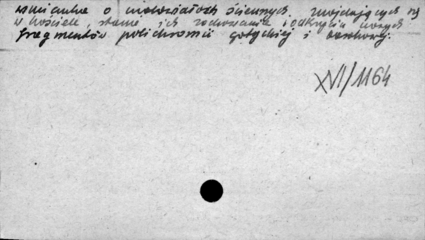 wzmianka o malowidłach ściennych, znajdujących się
w kościele, stanie ich zachowania i odkryciu nowych
fragmentów polichromii gotyckiej i barokowej.
XVI/1164